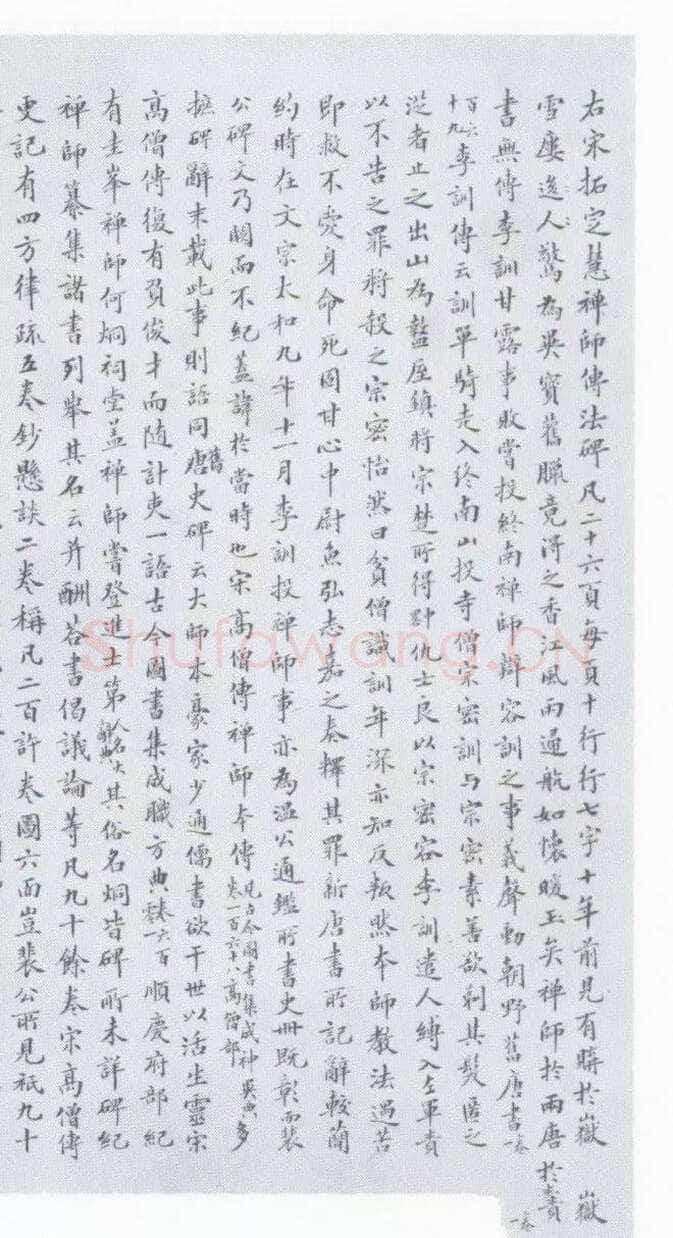 右宋拓定慧禪師傳法碑凡二十六頁每頁十行行七字十年前見有購於嶽
雪廔逸人驚為吳寶舊臘竟淂之香江風雨通航如懷暖玉矣禪師於兩唐
書無傳李訓甘露事敗嘗投終南禪師辯容訓之事義聲動朝野舊唐書一卷
百六十九李訓傳云訓單騎走入終南山投寺僧宗密訓与宗密素善欲剃其髮匿之
從者止之出山為盩厔鎮將宗楚所得對仇士良以宗密容李訓遣人縛入左軍責
以不告之罪將殺之宗密怡然曰貧僧識訓年深亦知反叛然本師教法遇苦
即救不愛身命死固甘心中尉魚弘志嘉之奏釋其罪新唐書所記辭較蕑
約時在文宗大和九年十一月李訓投禪師事亦為溫公通鑑所書史冊既彰而裴
公碑文乃闕而不紀蓋諱於當時也宋高僧傳禪師本傳見古今圖書集成神異典卷一百六十八高僧部多
摭碑辭末載此事則語同舊唐史碑云大師本豪家少通儒書欲干世以活生靈宗
高僧傳復有負俊才而隨計吏一語古今圖書集成職方典卷六百一順慶府部紀
有圭峯禪師何炯祠堂蓋禪師嘗登進士第其俗名炯皆碑所未詳碑紀
禪師纂集諸書列舉其名云并酬荅書偈議論等凡九十餘卷宋高僧傳
更記有四方律疏五卷鈔懸談二卷稱凡二百許卷圖六面豈裴公所見祇九十
嶽
於責
一卷
Shufawang.CN